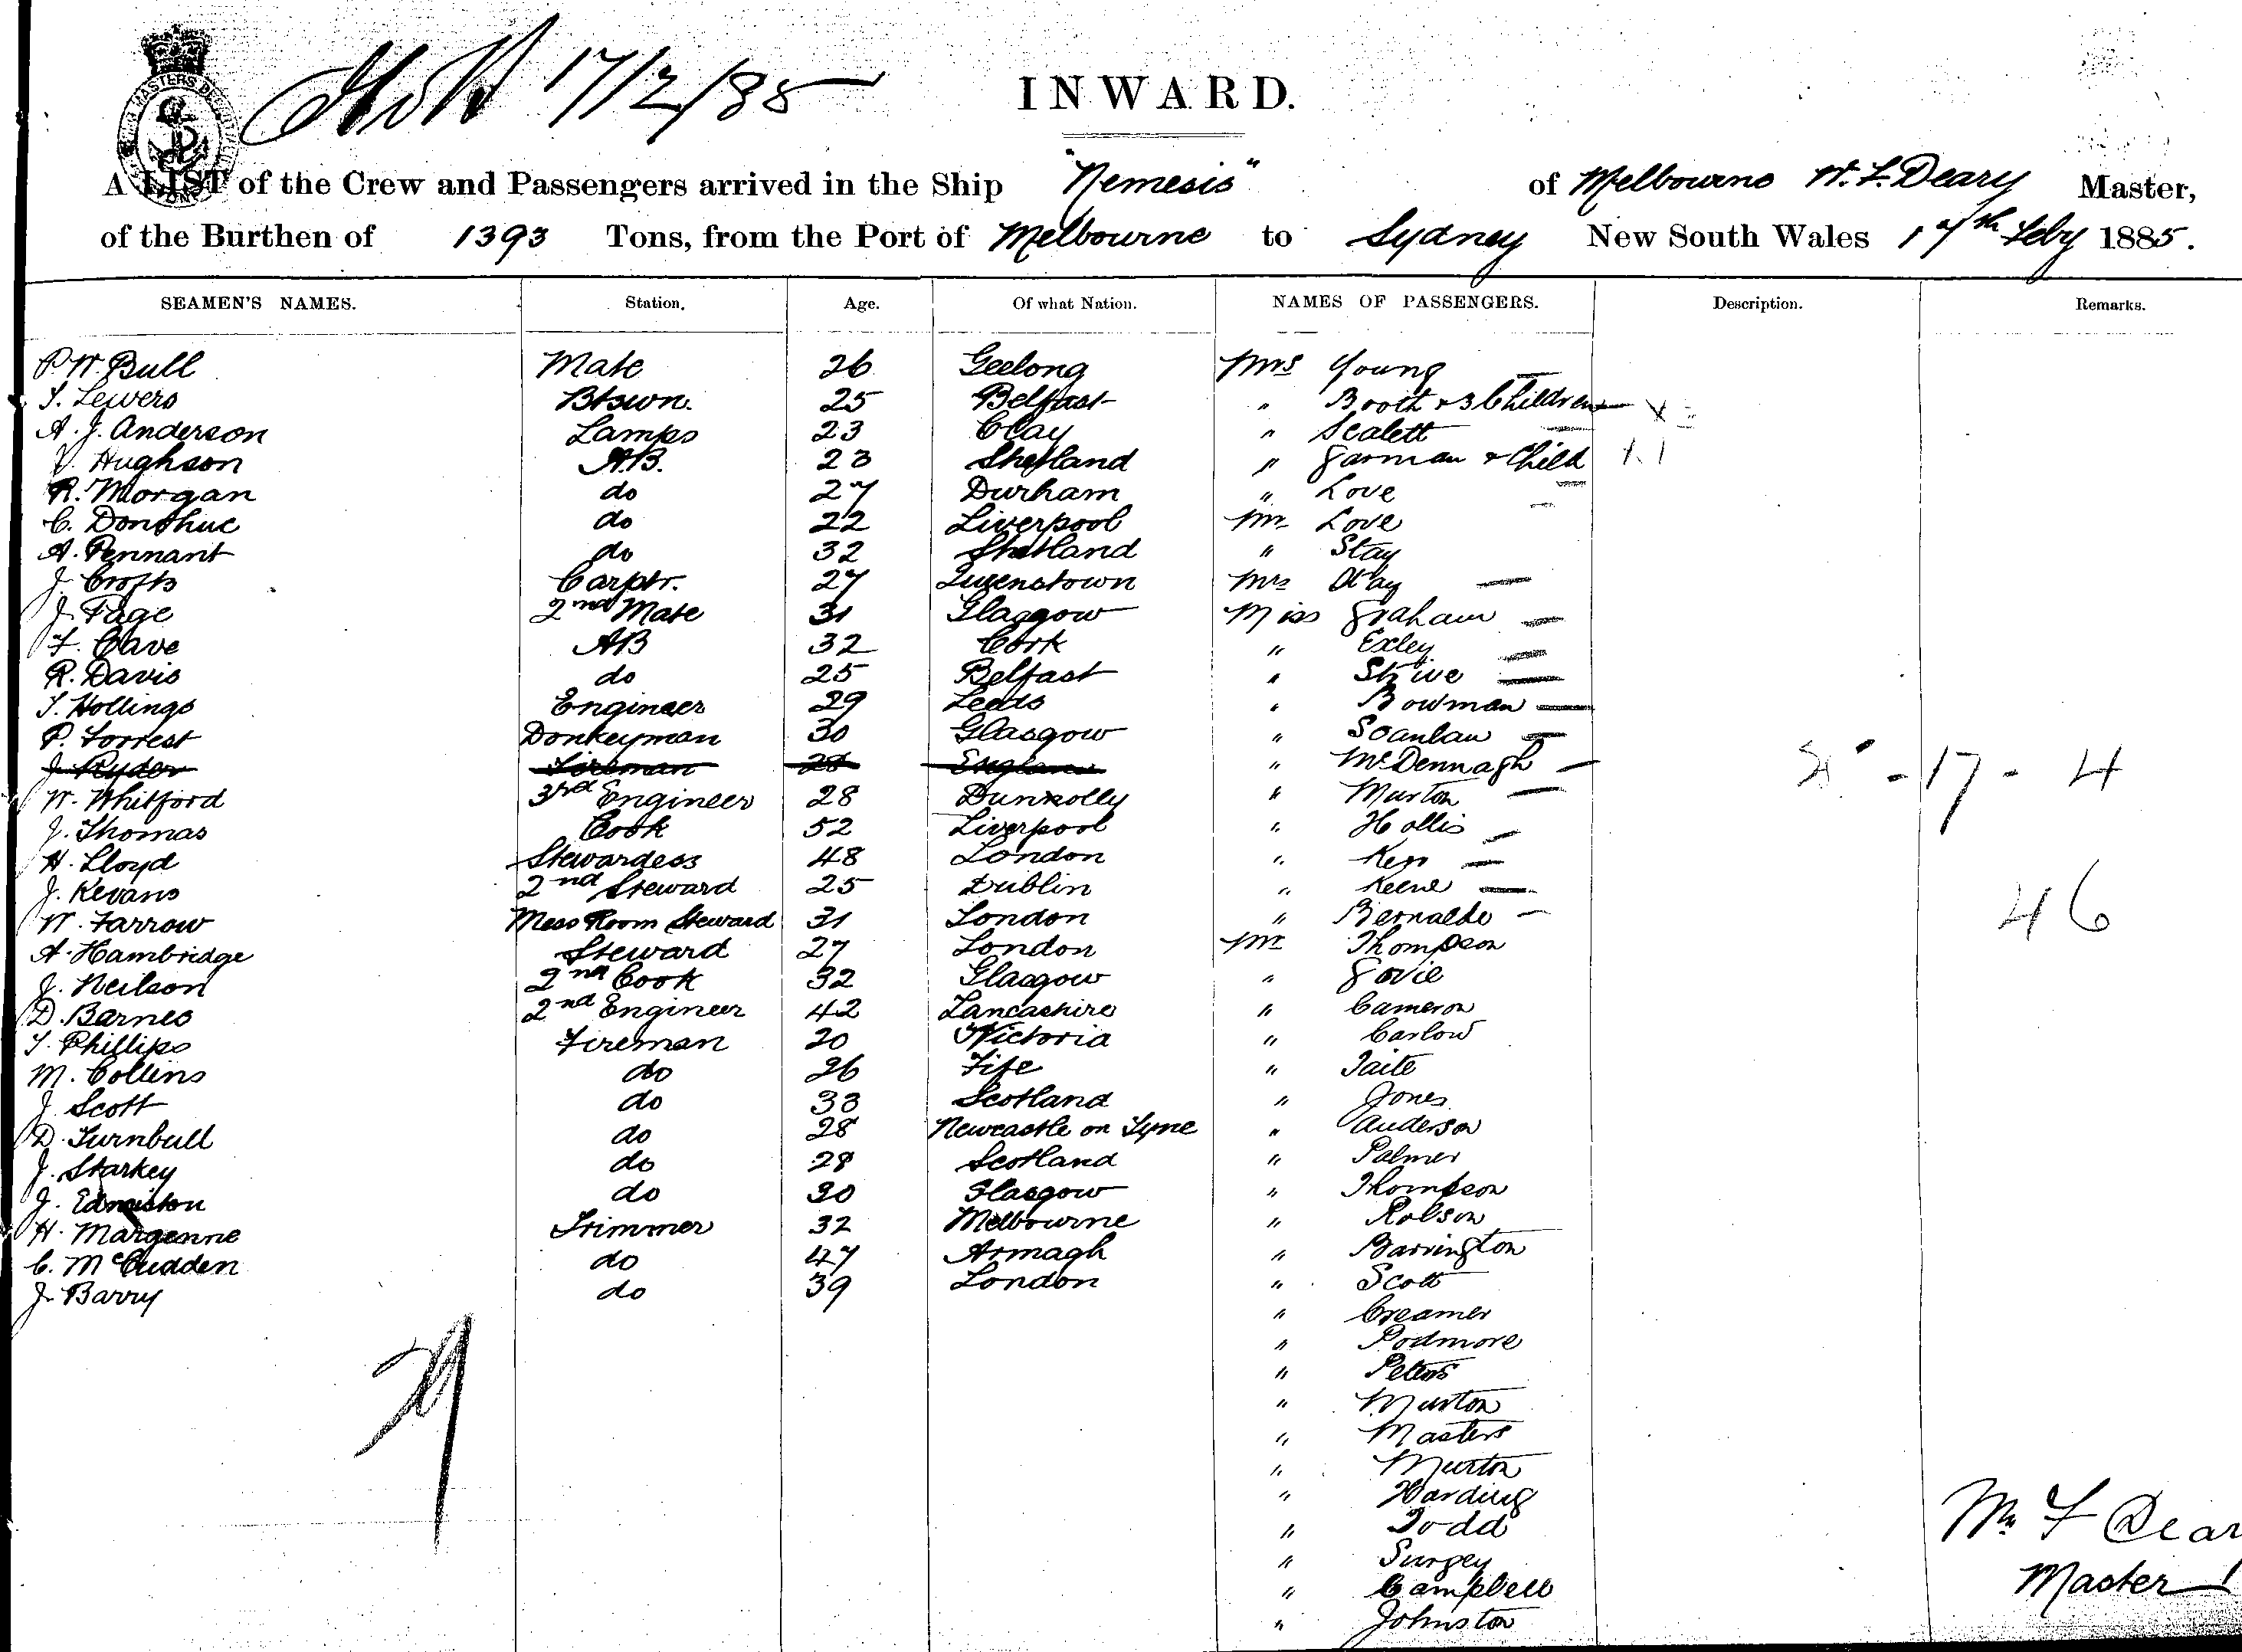 17/2/85
INWARD.
A LIST of the Crew and Passengers arrived in the Ship "Nemesis" of Melbourne W. F. Deary Master,
of the Burthen of 1393 Tons, from the Port of Melbourne to Sydney New South Wales 17th Feby 1885.
SEAMEN'S NAMES. Station. Age. Of what Nation. NAMES OF PASSENGERS. Description. Remarks.
P. W. Bull Mate 26 Geelong Mrs Young —
Lewers Btswn. 25 Belfast " Booth & 3 Children —
A. J. Anderson Lamps 23 Clay " Scalett —
Hughson A.B. 23 Shetland " Garman & Child
R. Morgan do 27 Durham " Love —
C. Donohue do 22 Liverpool Mr Love
A. Pennant do 32 Shetland " Stay
J. Crofts Carptr. 27 Queenstown Mrs —
J. Page 2nd Mate 31 Glasgow Miss Graham —
F. Cave AB 32 Cork " Exley —
R. Davis do 25 Belfast " —
Hollings Engineer 29 Leeds " Bowman —
P. Forrest Donkeyman 30 Glasgow " Scanlan —
J. Ryder Fireman 28 England " McDennagh —
W. Whitford 3rd Engineer 28 Dunnolly " Murton —
J. Thomas Cook 52 Liverpool " Hollis —
H. Lloyd Stewardess 48 London " —
J. Kevans 2nd Steward 25 Dublin " Keene —
W. Farrow Mess Room Steward 31 London " —
A. Hambridge Steward 27 London Mr Thompson
J. Neilson 2nd Cook 32 Glasgow "
D. Barnes 2nd Engineer 42 Lancashire " Cameron
Phillips Fireman 20 Victoria " Carlow
M. Collins do 26 Fife " Taite
J. Scott do 33 Scotland " Jones
D. Turnbull do 28 Newcastle on Tyne " Anderson
J. Starkey do 28 Scotland " Palmer
J. Edmiston do 30 Glasgow " Thompson
H. Margenne Trimmer 32 Melbourne " Robson
C. McCudden do 47 Armagh " Barrington
J. Barry do 39 London " Scott
" Creamer
" Podmore
" Peters
" Murton
" Masters
" Murton
" Harding
" Todd
" Surgey
" Campbell
" Johnston
- 17 - 4
46
Wm F Dear
Master